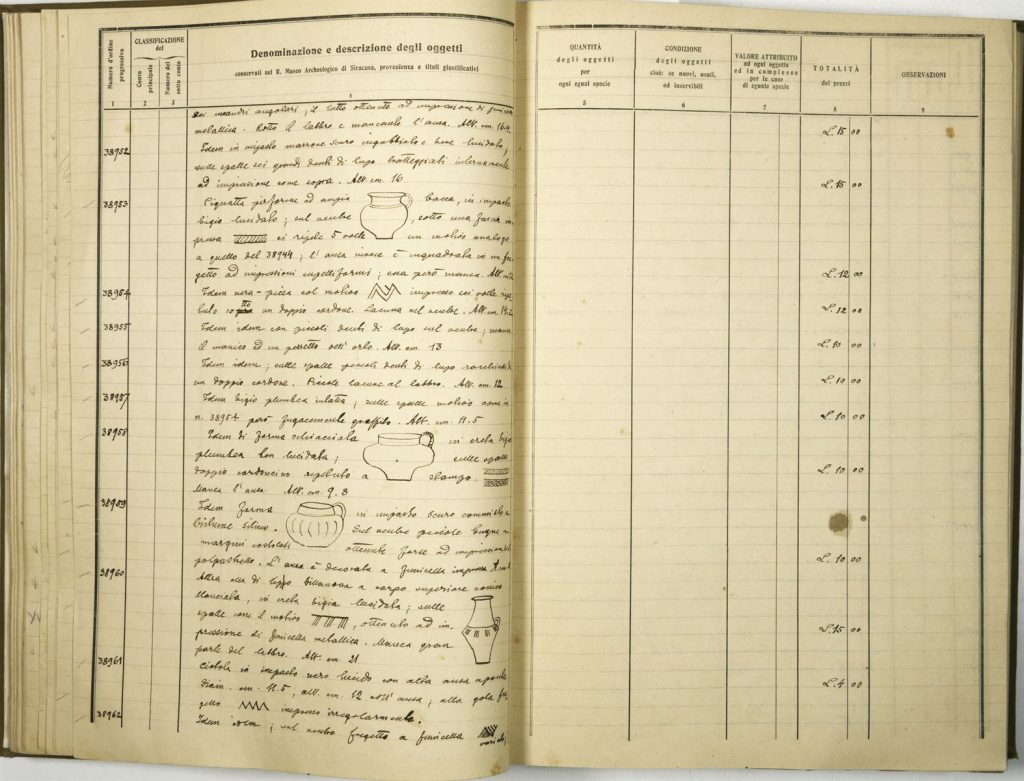 Numero d'ordine progressivo
CLASSIFICAZIONE
del
Conto principale
Numero del sotto conto
Denominazione e descrizione degli oggetti
conservati nel R. Museo Archeologico di Siracusa, provenienza e titoli giustificativi
1 2 3 4
sei meandri angolari, il tutto ottenuto ad impressione di funicella
metallica. Rotto il labbro e mancante l'ansa. Alt. cm. 16.4
38952
Idem in impasto marrone scuro ingubbiato e bene lucidato;
sulle spalle sei grandi denti di lupo tratteggiati internamente
ad impressione come sopra. Alt. cm. 16
38953
Pignatta piriforme ad ampia bocca, in impasto
bigio lucidato; sul ventre, sotto una fascia im-
pressa si ripete 5 volte un motivo analogo
a quello del 38944; l'ansa invece è inquadrata in un fre-
getto ad impressioni cupelliformi; essa però manca. Alt.
38954
Idem nera-picea col motivo impresso sei volte ripe-
tuto sotto un doppio cordone. Lacuna nel ventre. Alt. cm. 14.2
38955
Idem idem con piccoli denti di lupo sul ventre; manca
il manico ed un pezzetto dell'orlo. Alt. cm. 13
38956
Idem idem; sulle spalle piccoli denti di lupo racchiusi
un doppio cordone. Piccole lacune al labbro. Alt. cm. 12
38957
Idem bigio plumbea intatta; sulle spalle motivo come
n. 38954 però fugacemente graffito. Alt. cm. 11.5
38958
Idem di forma schiacciata in creta bigio
plumbea ben lucidata; sulle spalle
doppio cordoncino ripetuto a stampo.
Manca l'ansa. Alt. cm. 9.3
38959
Idem forma in impasto scuro commisto a
bitume siliceo. Sul ventre piccole bugne a
margini costolati ottenute forse ad impressione del
polpastrello. L'ansa è decorata a funicella impressa.
38960
Altra olla di tipo Villanova a corpo superiore conico
slanciato, in creta bigia lucidata; sulle
spalle corre il motivo, ottenuto ad im-
pressione di funicella metallica. Manca gran
parte del labbro. Alt. cm. 21
38961
Ciotola in impasto nero lucido con alta ansa
diam. cm. 11.5, alt. cm. 12 coll'ansa; alla gola fre-
getto impresso irregolarmente.
38962
Idem idem; sul ventre fregetto a funicella
QUANTITÀ
degli oggetti
per
ogni egual specie
CONDIZIONE
degli oggetti
cioè: se nuovi, usati,
od inservibili
VALORE ATTRIBUITO
ad ogni oggetto
ed in complesso
per le cose
di eguale specie
TOTALITÀ
dei prezzi
OSSERVAZIONI
5 6 7 8 9
L. 15 00
L. 15 00
L. 12 00
L. 12 00
L. 10 00
L. 10 00
L. 10 00
L. 10 00
L. 10 00
L. 15 00
L. 4 00